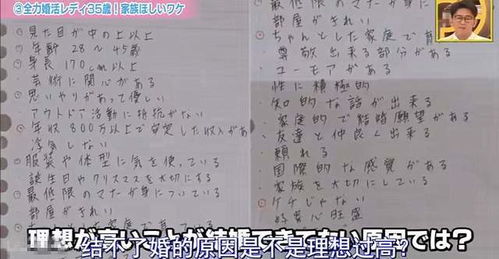 ③全力婚活レディ35歳！家族ほしいワケ
見た目が中の上以上
年齢 28〜45歳
身長 170cm以上
芸術に関心がある
思いやりがあって優しい
アウトドア活動に抵抗がない
年収800万以上で安定した収入がある
浮気しない
服装や体型に気を使っている
誕生日やクリスマスを大切にする
最低限のマナーが身についている
部屋がきれい
部屋がきれい
ちゃんとした家庭で育
尊敬出来る部分がある
ユーモアがある
性に積極的
知的な話が出来る
家庭的で結婚願望がある
友達と仲良く出来る
頼れる
国際的な感覚がある
家族を大切にしている
ケチじゃない
好奇心旺盛
理想が高いことが結婚できてない原因では？
结不了婚的原因是不是理想过高？